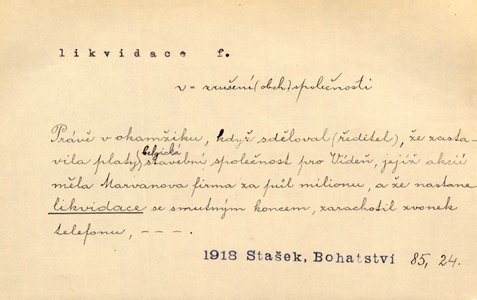 likvidace f.
v = zrušení (obch) společnosti
Právě v okamžiku, když sděloval (ředitel), že zasta-
vila platy belgická stavební společnost pro Vídeň, jejíž akcií
měla Marvanova firma za půl milionu, a že nastane
likvidace se smutným koncem, zarachotil zvonek
telefonu, — — — .
1918 Stašek, Bohatství 85, 24.